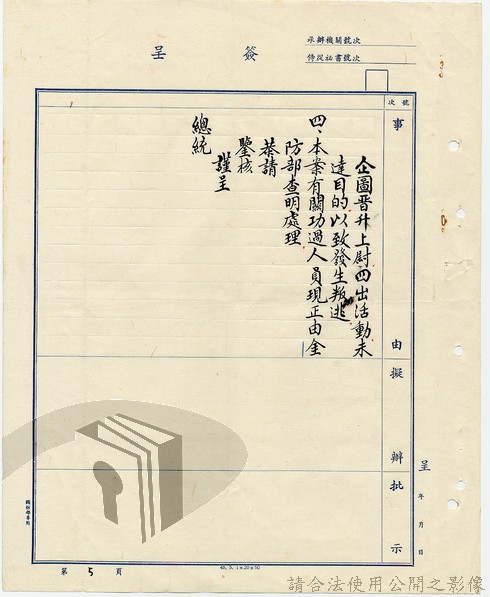 簽呈
承辦機關號次
侍從祕書號次
號次
事由
擬辦
批示
企圖晉升上尉四出活動未
達目的以致發生叛逃
四、本案有關功過人員現正由金
防部查明處理
恭請
鑒核
謹呈
總統
呈 年 月 日
第 5 頁
請合法使用公開之影像